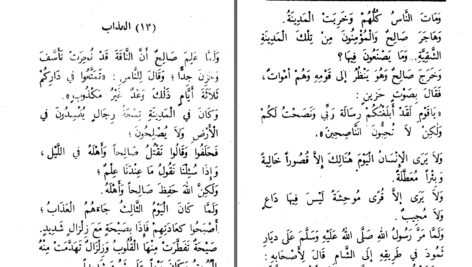 (١٣) العذاب
وَلَمَّا عَلِمَ صَالِحٌ أَنَّ النَّاقَةَ قَدْ نُحِرَتْ تَأَسَّفَ
وَحَزِنَ جِدًّا؛ وَقَالَ لِلنَّاسِ: «تَمَتَّعُوا فِي دَارِكُمْ
ثَلَاثَةَ أَيَّامٍ ذٰلِكَ وَعْدٌ غَيْرُ مَكْذُوبٍ»
وَكَانَ فِي الْمَدِينَةِ تِسْعَةُ رِجَالٍ يُفْسِدُونَ فِي
الْأَرْضِ وَلَا يُصْلِحُونَ؛
فَحَلَفُوا وَقَالُوا نَقْتُلُ صَالِحاً وَأَهْلَهُ فِي اللَّيْلِ،
وَإِذَا سُئِلْنَا نَقُولُ مَا عِنْدَنَا عِلْمٌ؛
وَلٰكِنَّ اللهَ حَفِظَ صَالِحاً وَأَهْلَهُ؛
وَلَمَّا كَانَ الْيَوْمُ الثَّالِثُ جَاءَهُمُ الْعَذَابُ؛
أَصْبَحُوا كَعَادَتِهِمْ فَإِذَا بِصَيْحَةٍ مَعَ زِلْزَالٍ شَدِيدٍ.
صَيْحَةٌ تَفَطَّرَتْ مِنْهَا الْقُلُوبُ وَزِلْزَالٌ تَهَدَّمَتْ مِنْهُ
وَمَاتَ النَّاسُ كُلُّهُمْ وَخَرِبَتْ الْمَدِينَةُ.
وَهَاجَرَ صَالِحٌ وَالْمُؤْمِنُونَ مِنْ تِلْكَ الْمَدِينَةِ
الشَّقِيَّةِ.. وَمَا يَصْنَعُونَ فِيهَا؟
وَخَرَجَ صَالِحٌ وَهُوَ يَنْظُرُ إِلَى قَوْمِهِ وَهُمْ أَمْوَاتٌ،
فَقَالَ بِصَوْتٍ حَزِينٍ:
«يَاقَوْمِ لَقَدْ أَبْلَغْتُكُمْ رِسَالَةَ رَبِّي وَنَصَحْتُ لَكُمْ
وَلٰكِنْ لَا تُحِبُّونَ النَّاصِحِينَ»
وَلَا يَرَى الْإِنْسَانُ الْيَوْمَ هُنَالِكَ إِلَّا قُصُوراً خَالِيَةً
وَبِئْراً مُعَطَّلَةً.
وَلَا يَرَى إِلَّا قُرًى مُوحِشَةً لَيْسَ فِيهَا دَاعٍ
وَلَا مُجِيبٌ.
وَلَمَّا مَرَّ رَسُولُ اللهِ صَلَّى اللهُ عَلَيْهِ وَسَلَّمَ عَلَى دِيَارِ
ثَمُودَ فِي طَرِيقِهِ إِلَى الشَّامِ قَالَ لِأَصْحَابِهِ: